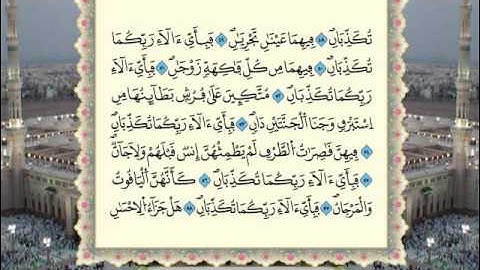 تُكَذِّبَانِ ۝٤٩ فِيهِمَا عَيْنَانِ تَجْرِيَانِ ۝٥٠ فَبِأَيِّ ءَالَآءِ رَبِّكُمَا
تُكَذِّبَانِ ۝٥١ فِيهِمَا مِن كُلِّ فَٰكِهَةٍ زَوْجَانِ ۝٥٢ فَبِأَيِّ ءَالَآءِ
رَبِّكُمَا تُكَذِّبَانِ ۝٥٣ مُتَّكِـِٔينَ عَلَىٰ فُرُشٍۭ بَطَآئِنُهَا مِنْ
إِسْتَبْرَقٍ وَجَنَى الْجَنَّتَيْنِ دَانٍ ۝٥٤ فَبِأَيِّ ءَالَآءِ رَبِّكُمَا تُكَذِّبَانِ
۝٥٥ فِيهِنَّ قَٰصِرَٰتُ الطَّرْفِ لَمْ يَطْمِثْهُنَّ إِنسٌ قَبْلَهُمْ وَلَا جَآنٌّ
۝٥٦ فَبِأَيِّ ءَالَآءِ رَبِّكُمَا تُكَذِّبَانِ ۝٥٧ كَأَنَّهُنَّ الْيَاقُوتُ
وَالْمَرْجَانُ ۝٥٨ فَبِأَيِّ ءَالَآءِ رَبِّكُمَا تُكَذِّبَانِ ۝٥٩ هَلْ جَزَآءُ الْإِحْسَٰنِ